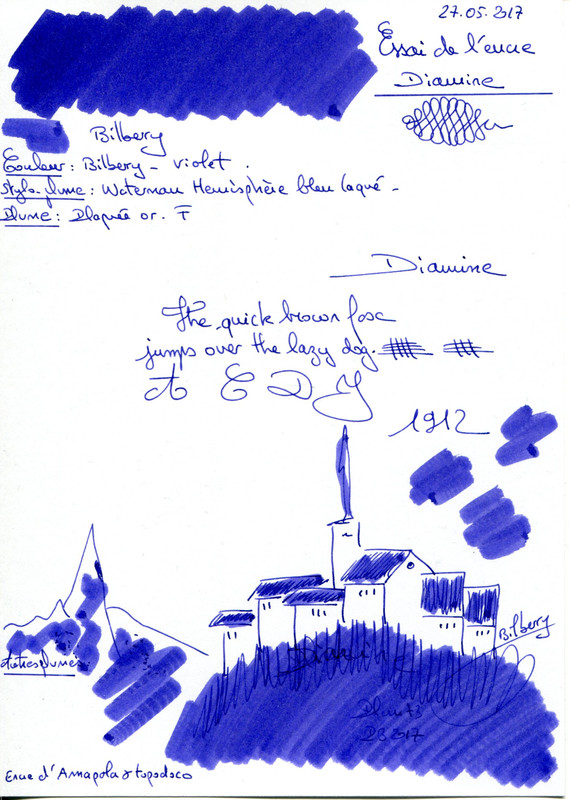 27.05.2017
Essai de l'encre
Diamine
Bilbery
Couleur : Bilbery - violet.
Stylo-plume : Waterman Hemisphère bleu laqué -
Plume : Plaquée or. F
Diamine
The quick brown fox
jumps over the lazy dog.
A E D Y
1912
Bilbery
Diamine
autres plumes
DS 2017
Encre d'Annapola & topodoco